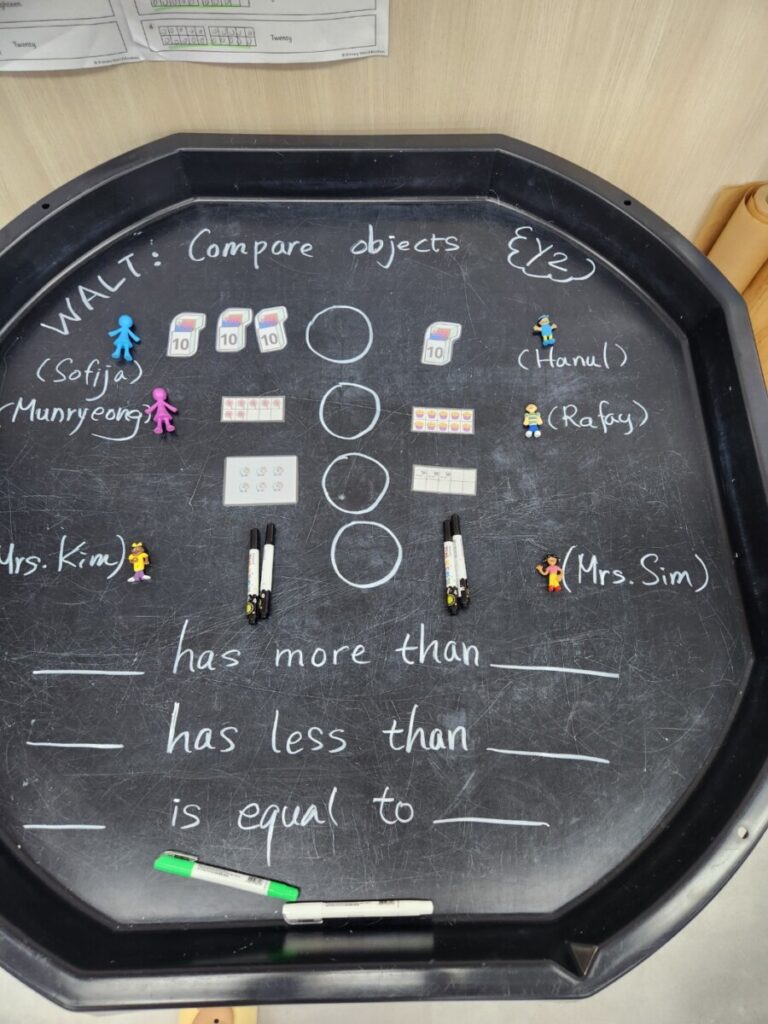 Twenty
Twenty
WALT: Compare objects Y2
10 10 10 10
(Sofija) (Hanul)
(Munryeong) (Rafay)
Mrs. Kim) (Mrs. Sim)
____ has more than ____
____ has less than ____
____ is equal to ____